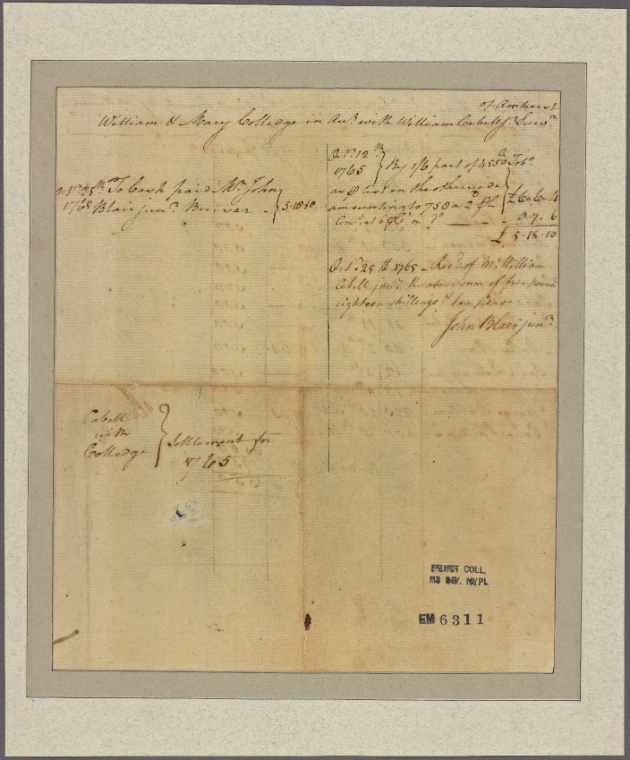 of Amherst
William & Mary Colledge in Acct with William Cabell Jr Survr
Octr 25th To Cash paid Mr John
1765 Blair junr Bursar - 5.18.10
Octr 12th
1765 By 1/6 part of
as on the other side £6.6.4
amounting to
0.7.6
£ 5.18.10
Octr 25th 1765 - Recd of Mr William
Cabell junr the above sum of five pounds
eighteen shillings & ten pence
John Blair junr
Cabell
with
Colledge
Settlement for
1765
EMMET COLL.
MS DIV. NYPL
EM 6311